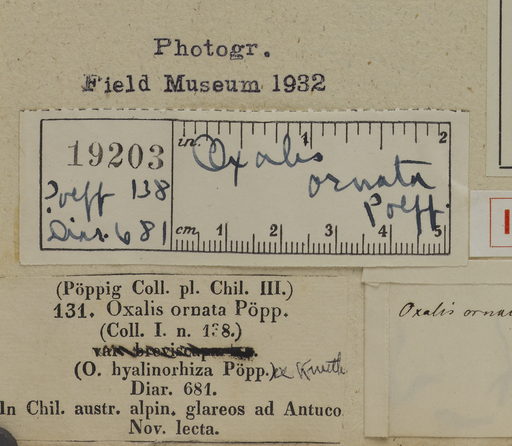 Photogr.
Field Museum 1932
19203
in. 1 2
Oxalis
ornata
Poepp 138
Poepp.
Diar. 681
cm 1 2 3 4 5
(Pöppig Coll. pl. Chil. III.)
131. Oxalis ornata Pöpp.
(Coll. I. n. 138.)
(O. hyalinorhiza Pöpp.) ex Knuth
Diar. 681.
In Chil. austr. alpin. glareos ad Antuco
Nov. lecta.
Oxalis orna